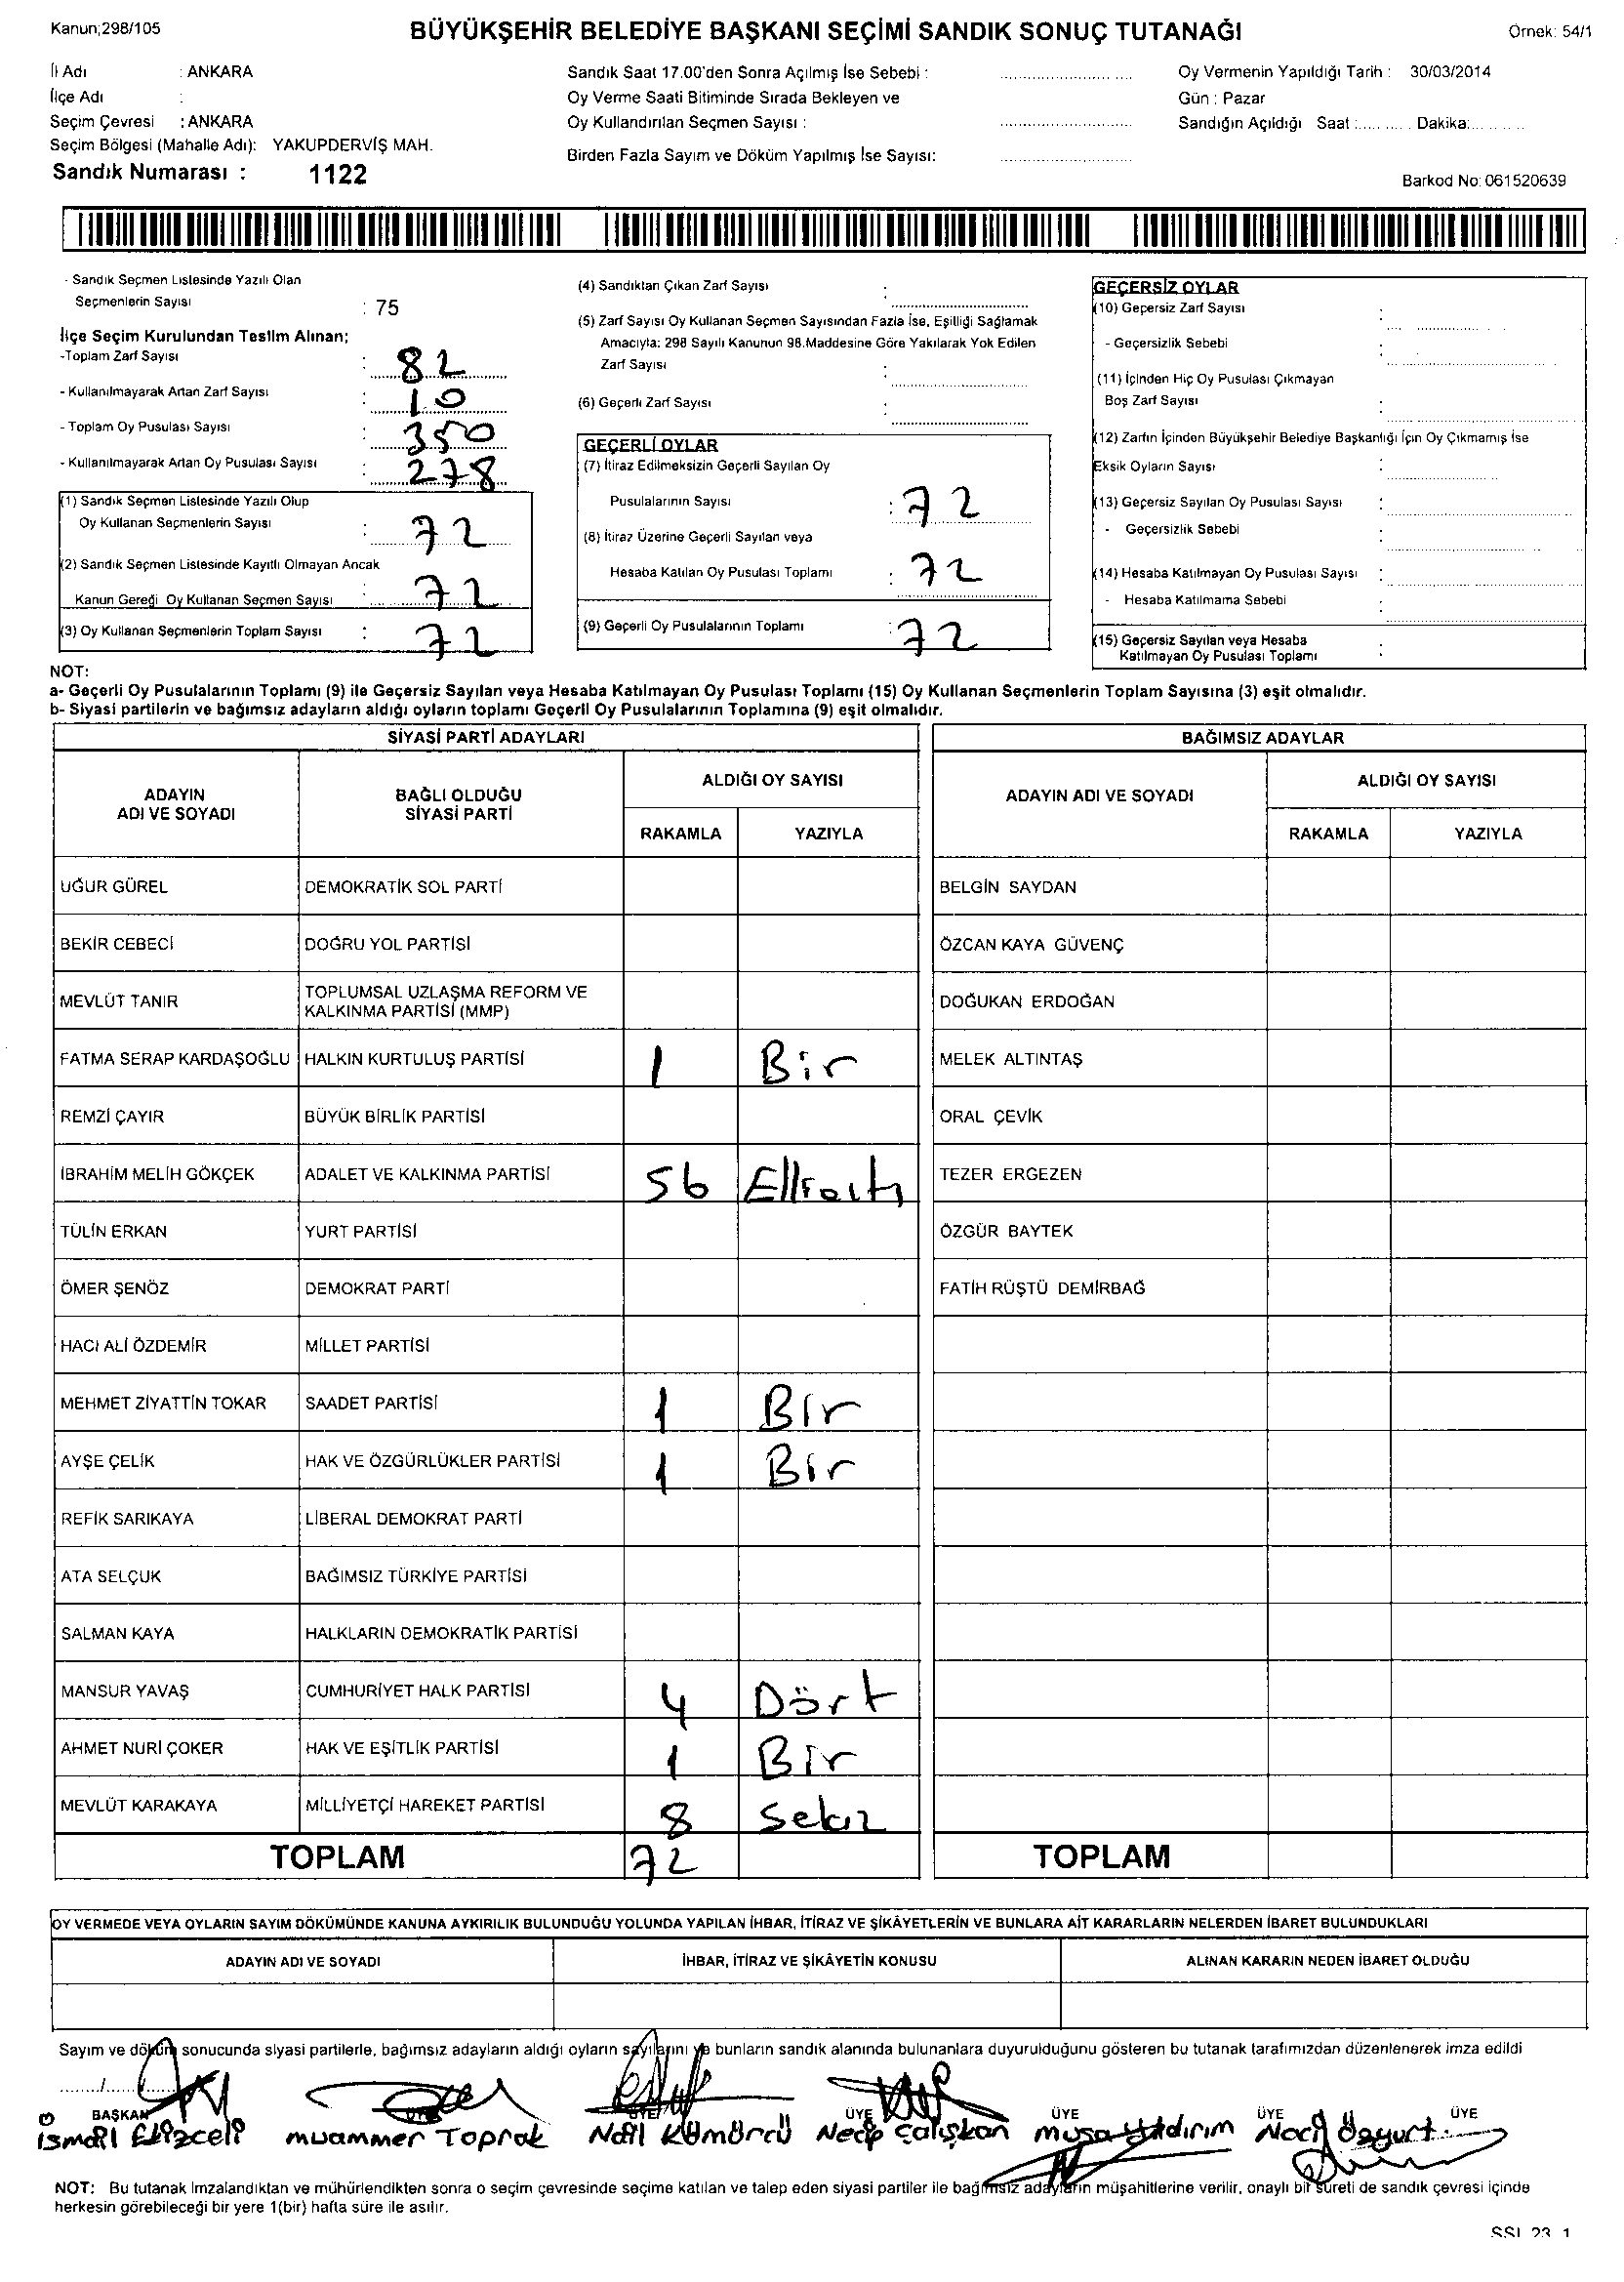 Kanun;298/105
BÜYÜKŞEHİR BELEDİYE BAŞKANI SEÇİMİ SANDIK SONUÇ TUTANAĞI
Örnek: 54/1
İl Adı : ANKARA
Sandık Saat 17.00'den Sonra Açılmış İse Sebebi :
Oy Vermenin Yapıldığı Tarih : 30/03/2014
İlçe Adı :
Oy Verme Saati Bitiminde Sırada Bekleyen ve
Gün : Pazar
Seçim Çevresi : ANKARA
Oy Kullandırılan Seçmen Sayısı :
Sandığın Açıldığı Saat :......... . Dakika:... .. ..
Seçim Bölgesi (Mahalle Adı): YAKUPDERVİŞ MAH.
Birden Fazla Sayım ve Döküm Yapılmış İse Sayısı:
Sandık Numarası : 1122
Barkod No: 061520639
- Sandık Seçmen Listesinde Yazılı Olan
Seçmenlerin Sayısı : 75
İlçe Seçim Kurulundan Teslim Alınan;
-Toplam Zarf Sayısı : 82
- Kullanılmayarak Artan Zarf Sayısı : 10
- Toplam Oy Pusulası Sayısı : 350
- Kullanılmayarak Artan Oy Pusulası Sayısı : 278
(1) Sandık Seçmen Listesinde Yazılı Olup
Oy Kullanan Seçmenlerin Sayısı : 72
(2) Sandık Seçmen Listesinde Kayıtlı Olmayan Ancak
Kanun Gereği Oy Kullanan Seçmen Sayısı : 72
(3) Oy Kullanan Seçmenlerin Toplam Sayısı : 72
(4) Sandıktan Çıkan Zarf Sayısı :
(5) Zarf Sayısı Oy Kullanan Seçmen Sayısından Fazla İse, Eşitliği Sağlamak
Amacıyla: 298 Sayılı Kanunun 98.Maddesine Göre Yakılarak Yok Edilen
Zarf Sayısı :
(6) Geçerli Zarf Sayısı :
GEÇERLİ OYLAR
(7) İtiraz Edilmeksizin Geçerli Sayılan Oy
Pusulalarının Sayısı : 72
(8) İtiraz Üzerine Geçerli Sayılan veya
Hesaba Katılan Oy Pusulası Toplamı : 72
(9) Geçerli Oy Pusulalarının Toplamı : 72
GEÇERSİZ OYLAR
(10) Geçersiz Zarf Sayısı :
- Geçersizlik Sebebi :
(11) İçinden Hiç Oy Pusulası Çıkmayan
Boş Zarf Sayısı :
(12) Zarfın İçinden Büyükşehir Belediye Başkanlığı İçin Oy Çıkmamış İse
Eksik Oyların Sayısı :
(13) Geçersiz Sayılan Oy Pusulası Sayısı :
- Geçersizlik Sebebi :
(14) Hesaba Katılmayan Oy Pusulası Sayısı :
- Hesaba Katılmama Sebebi :
(15) Geçersiz Sayılan veya Hesaba
Katılmayan Oy Pusulası Toplamı :
NOT:
a- Geçerli Oy Pusulalarının Toplamı (9) ile Geçersiz Sayılan veya Hesaba Katılmayan Oy Pusulası Toplamı (15) Oy Kullanan Seçmenlerin Toplam Sayısına (3) eşit olmalıdır.
b- Siyasi partilerin ve bağımsız adayların aldığı oyların toplamı Geçerli Oy Pusulalarının Toplamına (9) eşit olmalıdır.
SİYASİ PARTİ ADAYLARI
ADAYIN ADI VE SOYADI
BAĞLI OLDUĞU SİYASİ PARTİ
ALDIĞI OY SAYISI
RAKAMLA YAZIYLA
UĞUR GÜREL DEMOKRATİK SOL PARTİ
BEKİR CEBECİ DOĞRU YOL PARTİSİ
MEVLÜT TANIR TOPLUMSAL UZLAŞMA REFORM VE
KALKINMA PARTİSİ (MMP)
FATMA SERAP KARDAŞOĞLU HALKIN KURTULUŞ PARTİSİ 1 Bir
REMZİ ÇAYIR BÜYÜK BİRLİK PARTİSİ
İBRAHİM MELİH GÖKÇEK ADALET VE KALKINMA PARTİSİ 56 Ellialtı
TÜLİN ERKAN YURT PARTİSİ
ÖMER ŞENÖZ DEMOKRAT PARTİ
HACI ALİ ÖZDEMİR MİLLET PARTİSİ
MEHMET ZİYATTİN TOKAR SAADET PARTİSİ 1 Bir
AYŞE ÇELİK HAK VE ÖZGÜRLÜKLER PARTİSİ 1 Bir
REFİK SARIKAYA LİBERAL DEMOKRAT PARTİ
ATA SELÇUK BAĞIMSIZ TÜRKİYE PARTİSİ
SALMAN KAYA HALKLARIN DEMOKRATİK PARTİSİ
MANSUR YAVAŞ CUMHURİYET HALK PARTİSİ 4 Dört
AHMET NURİ ÇOKER HAK VE EŞİTLİK PARTİSİ 1 Bir
MEVLÜT KARAKAYA MİLLİYETÇİ HAREKET PARTİSİ 8 Sekiz
TOPLAM 72
BAĞIMSIZ ADAYLAR
ADAYIN ADI VE SOYADI
ALDIĞI OY SAYISI
RAKAMLA YAZIYLA
BELGİN SAYDAN
ÖZCAN KAYA GÜVENÇ
DOĞUKAN ERDOĞAN
MELEK ALTINTAŞ
ORAL ÇEVİK
TEZER ERGEZEN
ÖZGÜR BAYTEK
FATİH RÜŞTÜ DEMİRBAĞ
TOPLAM
OY VERMEDE VEYA OYLARIN SAYIM DÖKÜMÜNDE KANUNA AYKIRILIK BULUNDUĞU YOLUNDA YAPILAN İHBAR, İTİRAZ VE ŞİKÂYETLERİN VE BUNLARA AİT KARARLARIN NELERDEN İBARET BULUNDUKLARI
ADAYIN ADI VE SOYADI İHBAR, İTİRAZ VE ŞİKÂYETİN KONUSU ALINAN KARARIN NEDEN İBARET OLDUĞU
Sayım ve döküm sonucunda siyasi partilerle, bağımsız adayların aldığı oyların sayılarını ve bunların sandık alanında bulunanlara duyurulduğunu gösteren bu tutanak tarafımızdan düzenlenerek imza edildi
BAŞKAN ÜYE ÜYE ÜYE ÜYE ÜYE ÜYE
İsmail muammer Toprak Nail Kömürcü Necip Çalışkan musa Yıldırım Naci Özyurt
NOT: Bu tutanak İmzalandıktan ve mühürlendikten sonra o seçim çevresinde seçime katılan ve talep eden siyasi partiler ile bağımsız adayların müşahitlerine verilir, onaylı bir sureti de sandık çevresi içinde
herkesin görebileceği bir yere 1(bir) hafta süre ile asılır.